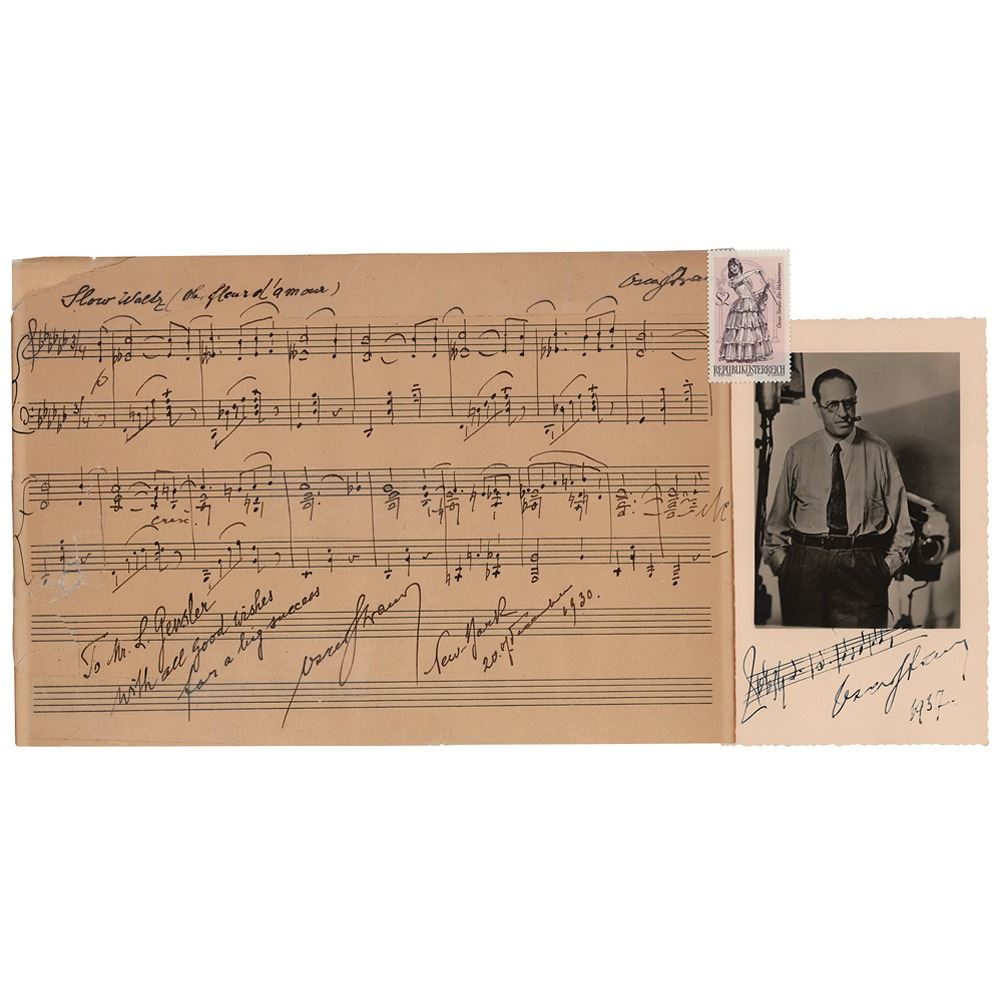 Slow Waltz (Oh, fleur d'amour)
Oscar Straus
3/4
p
3/4
cresc.
To Mr. L. Gensler
with all good wishes
for a big success
Oscar Straus
New-York
20. December 1930.
S2
Oscar Straus: Ein Walzertraum
REPUBLIK ÖSTERREICH
Oscar Straus
1937.